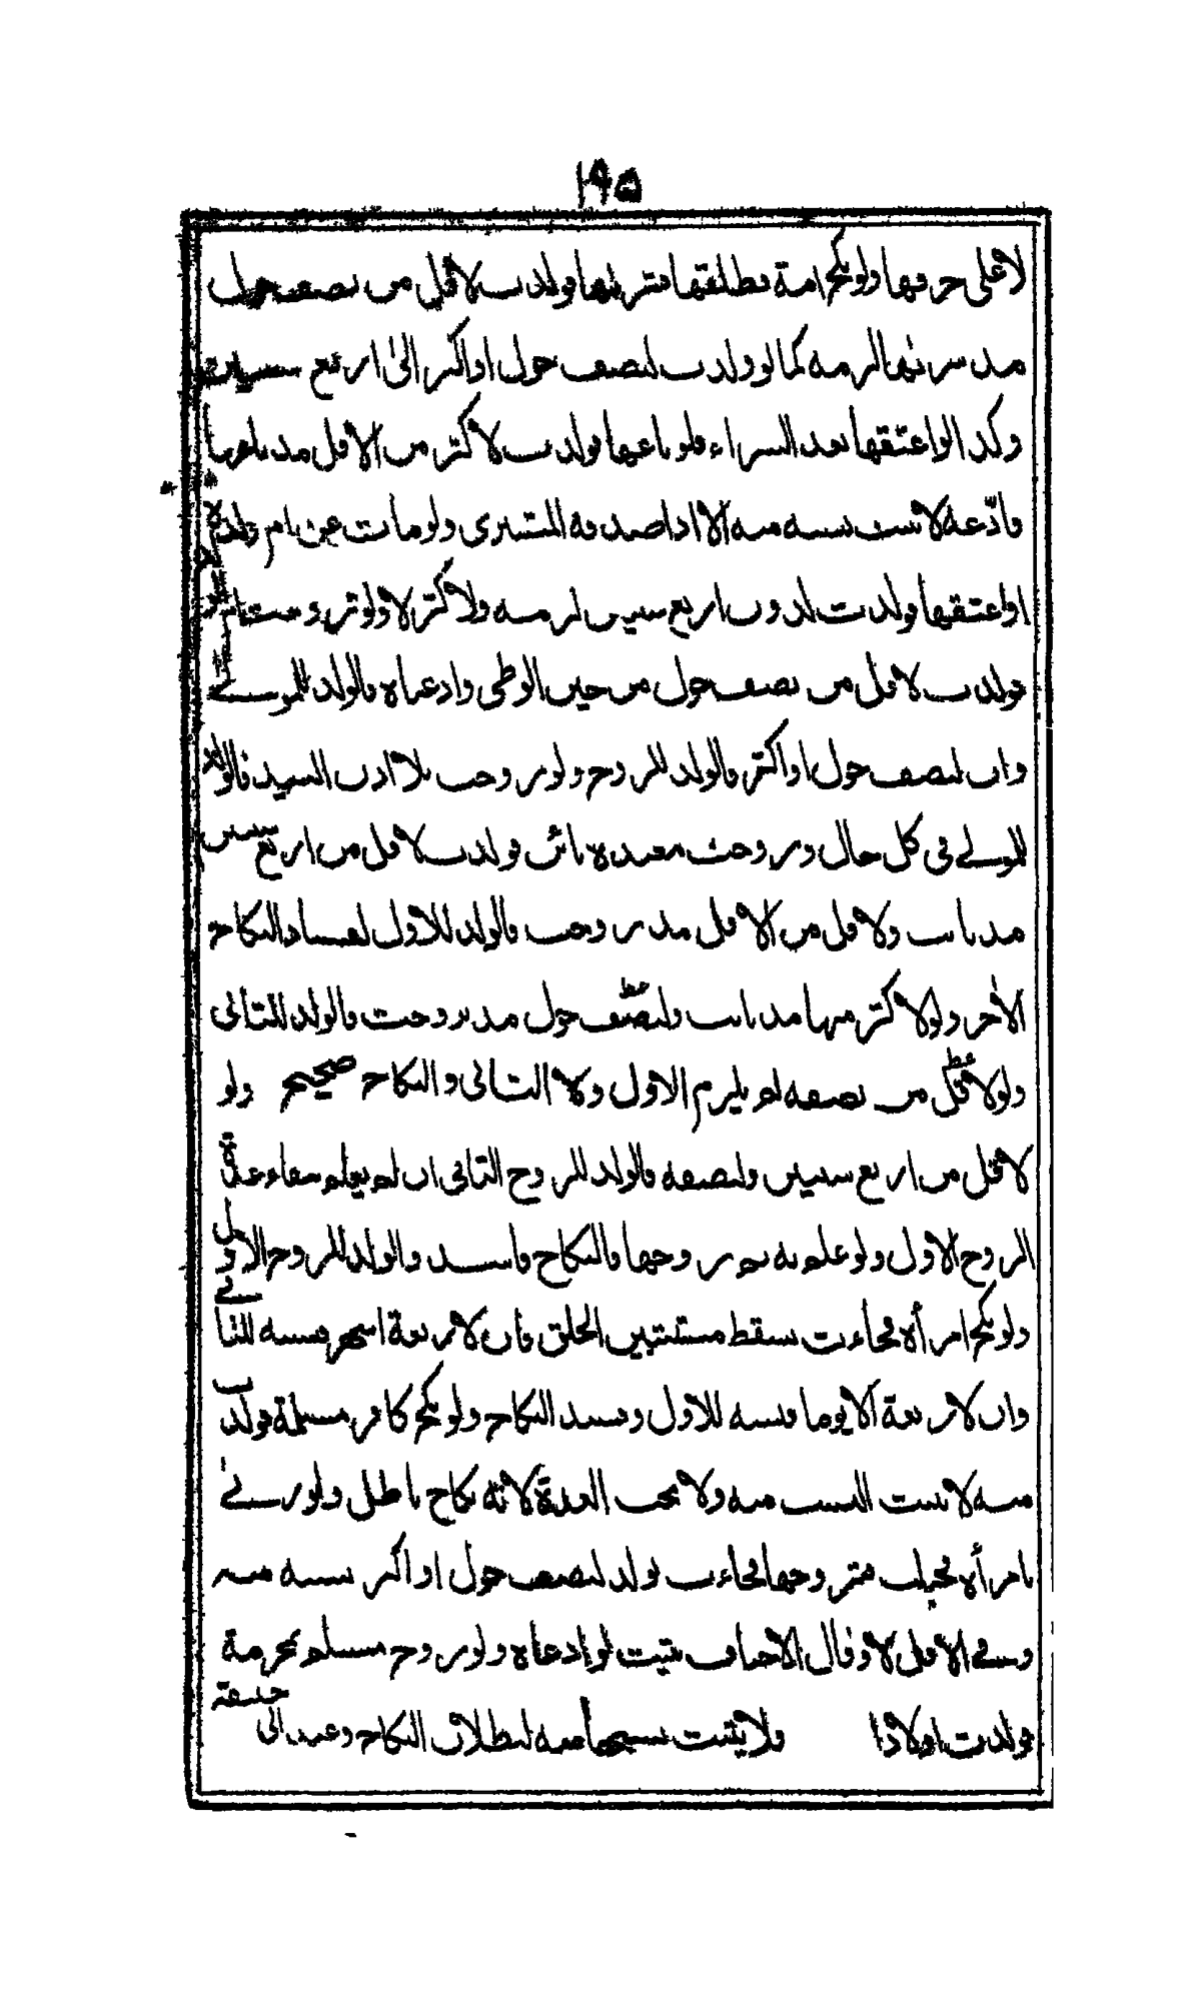 ١٩٥
لا على حرفيها ولو نكح امة فطلقها فشريها فولدت لاقل من نصف حول
مذ شريها لزمه كما لو ولدت لنصف حول او اكثر الى اربع سنين
وكذا لو اعتقها بعد الشراء ولو باعها فولدت لاكثر من الاقل مذ باعها
فادّعه لا يثبت نسبه منه الا اذا صدقه المشترى ولو مات عن ام ولده
او اعتقها ولدت لدون اربع سنين لزمه ولاكثر لا ولو تزوجت
فولدت لاقل من نصف حول من حين الوطى وادعياه فالولد للمولے
وان لنصف حول او اكثر فالولد للزوج ولو تزوجت بلا اذن السيد فالولد
للمولے فى كل حال وتزوجت معتدة بائن فولدت لاقل من اربع سنين
مذ بانت ولاقل من الاقل مذ تزوجت فالولد للاول لفساد النكاح
الآخر ولو لاكثر منها مذ بانت ولنصف حول مذ تزوجت فالولد للثانى
ولو لاقل من نصفه لم يلزم الاول ولا الثانى والنكاح صحيح ولو
لاقل من اربع سنين ولنصفه فالولد للزوج الثانى ان لم يعلم بقاء عدة
الزوج الاول ولو علم به يوم تزوجها فالنكاح فاسد والولد للزوج الاول
ولو نكح امرأة فجاءت بسقط مستبين الخلق فان لاربعة اشهر فنسبه للثانے
وان لاربعة الا يوما فنسبه للاول وفسد النكاح ولو نكح كافر مسلمة فولدت
منه لا يثبت النسب منه ولا تجب العدة لانه نكاح باطل ولو زنے
بامرأة فحبلت فتزوجها فجاءت بولد لنصف حول او اكثر نسبه منه
وفے الاقل لا وقال الاحناف يثبت لو ادعاه ولو تزوج مسلم بمحرمة
فولدت اولادا ولا يثبت نسبها منه لبطلان النكاح وعند ابى حنيفة